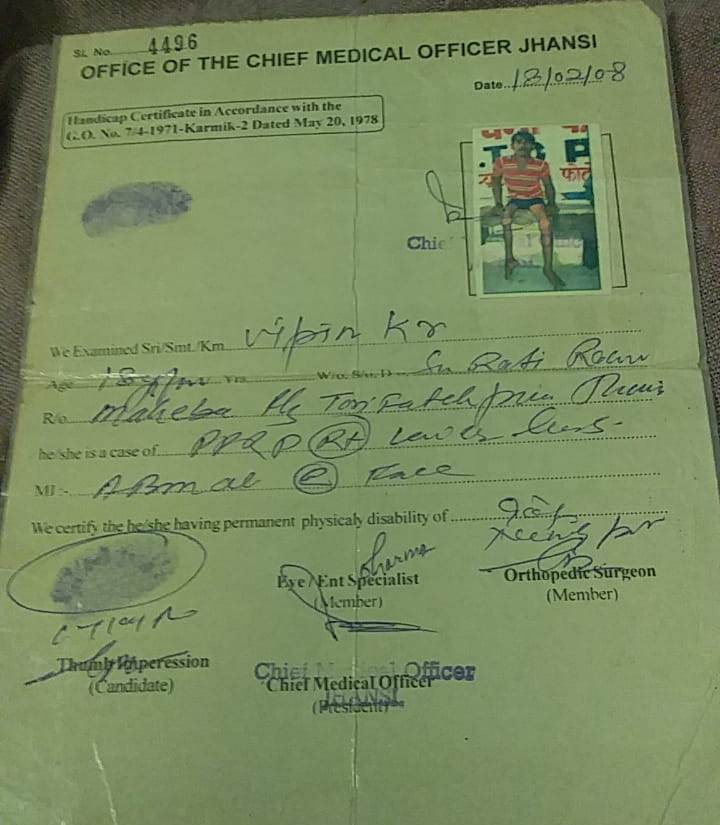 SL No. 4496
OFFICE OF THE CHIEF MEDICAL OFFICER JHANSI
Date. 18/02/08
Handicap Certificate in Accordance with the
G.O. No. 7/4-1971-Karmik-2 Dated May 20, 1978
फोटो
Chief
We Examined Sri/Smt./Km. Vipin Kr
Age 18 Yrs. W/o. S/o. D/o Sri Rati Ram
R/o Maheba
he/she is a case of PPRP Rt Lower
MI :- A Bmal @ Face
We certify the he/she having permanent physicaly disability of
Sharma
Eye / Ent Specialist
(Member)
Orthopedic Surgeon
(Member)
Thumb Imperession
(Candidate)
Chief Medical Officer
JHANSI
Chief Medical Officer
(President)